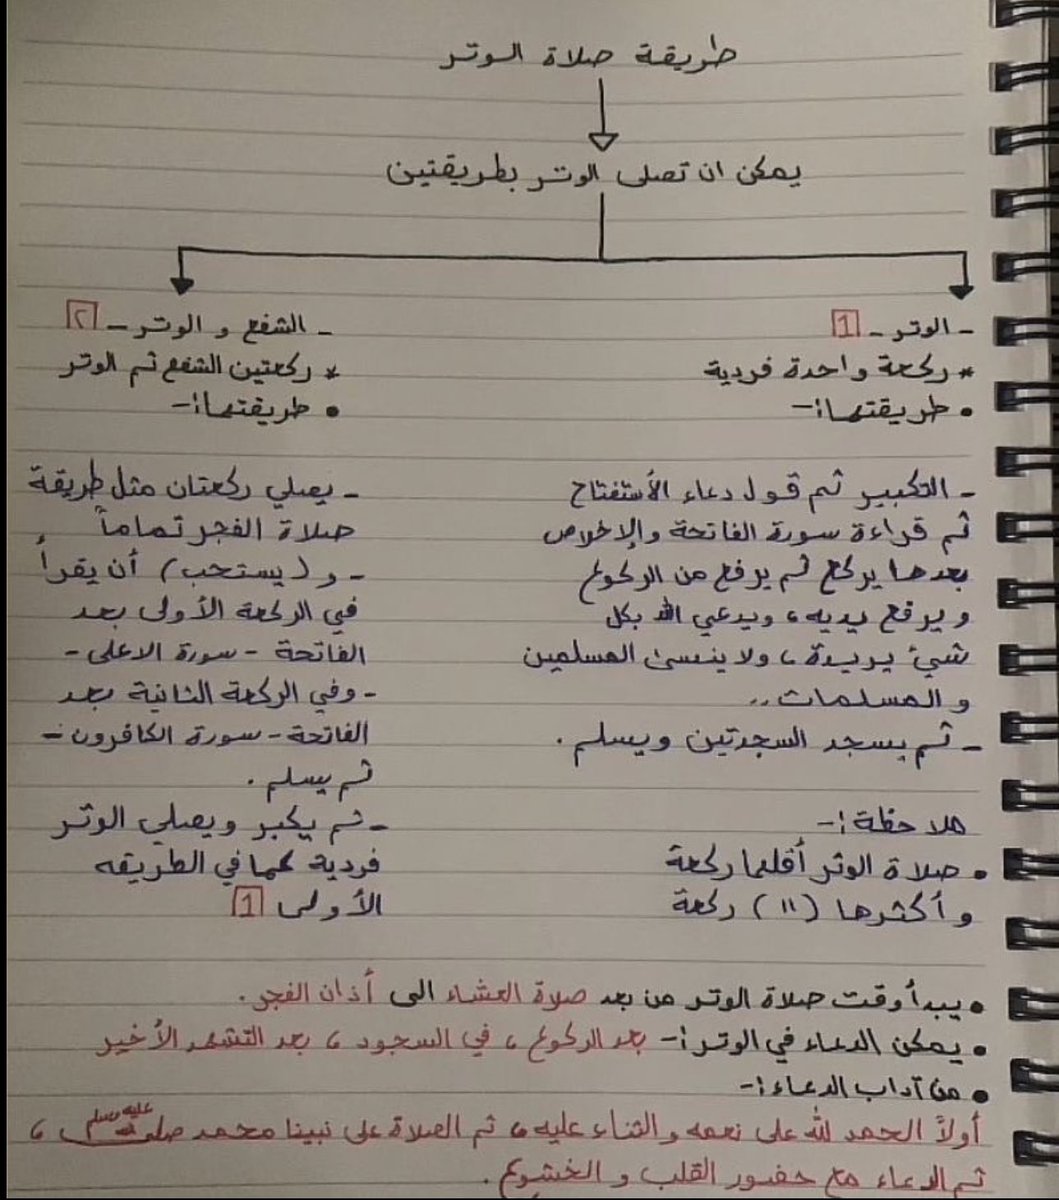 طريقة صلاة الوتر
يمكن ان تصلى الوتر بطريقتين
- الوتر - 1
* ركعة واحدة فردية
• طريقتها:-
- التكبير ثم قول دعاء الأستفتاح
ثم قراءة سورة الفاتحة والإخلاص
بعدها يركع ثم يرفع من الركوع
ويرفع يديه، ويدعي الله بكل
شيئ يريدة، ولا ينسى المسلمين
و المسلمات..
- ثم يسجد السجدتين ويسلم.
ملاحظة:-
• صلاة الوتر أقلها ركعة
وأكثرها (١١) ركعة
- الشفع و الوتر - ٢
* ركعتين الشفع ثم الوتر
• طريقتها:-
- يصلي ركعتان مثل طريقة
صلاة الفجر تماماً
- و (يستحب) أن يقرأ
في الركعة الأولى بعد
الفاتحة - سورة الاعلى -
- وفي الركعة الثانية بعد
الفاتحة - سورة الكافرون -
ثم يسلم.
- ثم يكبر ويصلي الوتر
فردية كما في الطريقه
الأولى 1
• يبدأ وقت صلاة الوتر من بعد صلاة العشاء الى أذان الفجر.
• يمكن الدعاء في الوتر:- بعد الركوع، في السجود، بعد التشهد الأخير
• من آداب الدعاء:-
أولاً الحمد لله على نعمه والثناء عليه، ثم الصلاة على نبينا محمد صلى الله عليه وسلم،
ثم الدعاء مع حضور القلب و الخشوع.